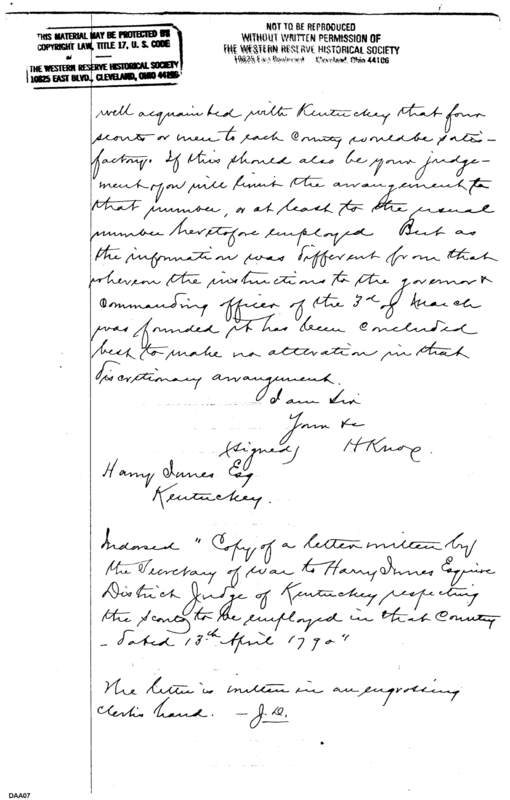 THIS MATERIAL MAY BE PROTECTED BY
COPYRIGHT LAW, TITLE 17, U. S. CODE
THE WESTERN RESERVE HISTORICAL SOCIETY
10825 EAST BLVD., CLEVELAND, OHIO 44106
NOT TO BE REPRODUCED
WITHOUT WRITTEN PERMISSION OF
THE WESTERN RESERVE HISTORICAL SOCIETY
10825 East Boulevard Cleveland, Ohio 44106
well acquainted with Kentuckey that four
scouts or men to each County would be satis-
factory. If this should also be your judge-
ment you will limit the arrangement to
that number, or at least to the usual
number heretofore employed But as
the information was different from that
whereon the instructions to the governor &
Commanding officer of the 3d of March
was founded it has been concluded
best to make no alteration in that
discretionary arrangement.
I am Sir
Your &c
(signed) H Knox.
Harry Innes Esq
Kentuckey.
Indorsed "Copy of a letter written by
the Secretary of war to Harry Innes Esquire
District Judge of Kentuckey respecting
the scouts to be employed in that Country
- dated 13th April 1790"
The letter is written in an engrossing
clerks hand. - J.D.
DAA07